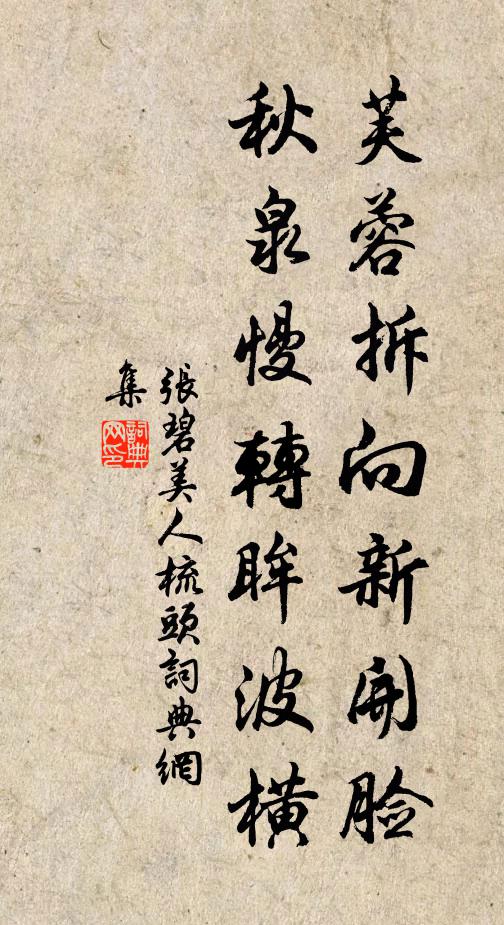 芙蓉拆向新開臉
秋泉慢轉眸波橫
張碧美人梳頭詞典網
集
詞典
网印